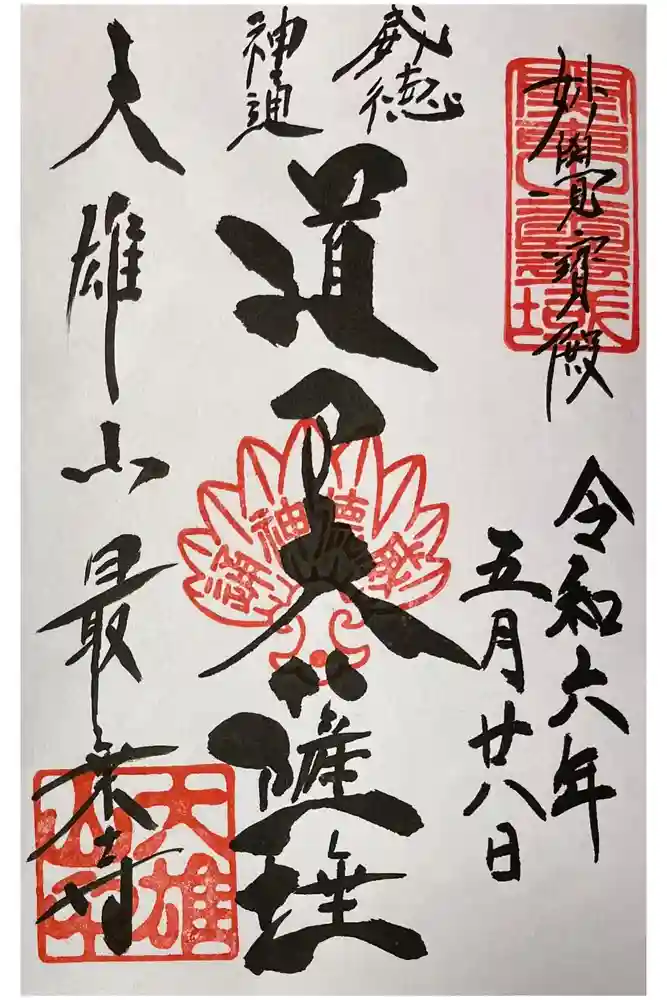 妙覺寶殿
令和六年
五月廿八日
威徳
神通
道了大薩埵
威徳神通
大雄山最乗寺
大雄